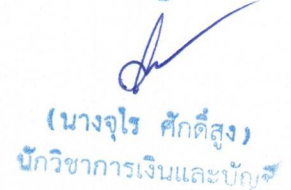 (นางจุไร ศักดิ์สูง)
นักวิชาการเงินและบัญชี